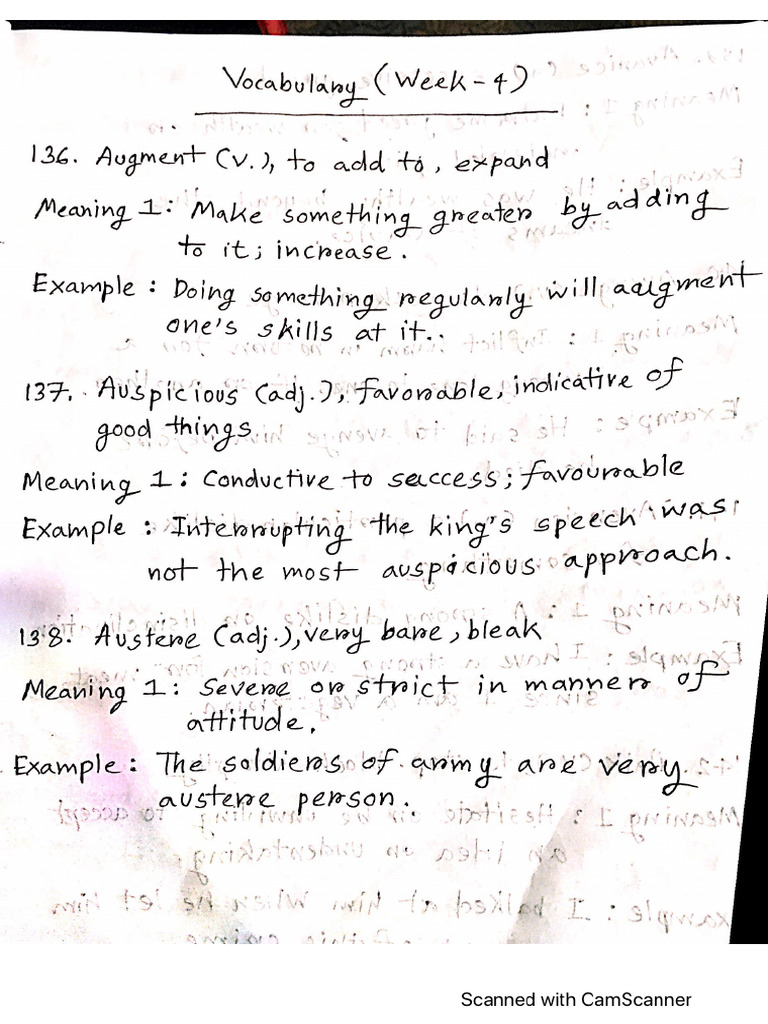 Vocabulary (Week-4)
136. Augment (v.), to add to, expand
Meaning 1: Make something greater by adding
to it; increase.
Example: Doing something regularly will augment
one's skills at it.
137. Auspicious (adj.), favorable, indicative of
good things
Meaning 1: Conductive to success; favourable
Example: Interrupting the king's speech was
not the most auspicious approach.
138. Austere (adj.), very bare, bleak
Meaning 1: Severe or strict in manner of
attitude.
Example: The soldiers of army are very
austere person.
Scanned with CamScanner